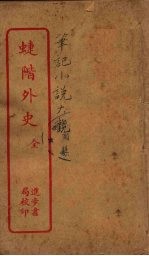 筆記小說大觀
蜨階外史
全
進步書
局校印